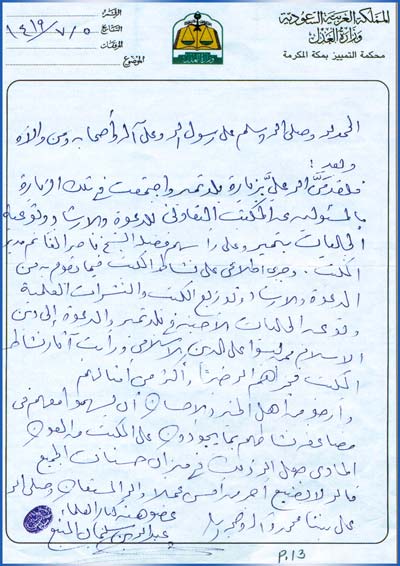 المملكة العربية السعودية
وزارة العدل
محكمة التمييز بمكة المكرمة
الرقم
التاريخ ١٤١٩/٧/٥
المرفقات
الموضوع
وزارة العدل
الحمد لله وصلى الله وسلم على رسول الله وعلى آله وأصحابه ومن والاه
وبعد :
فلقد مَنَّ الله عليَّ بزيارة بلد تمير واجتمعت في تلك الزيارة
بالمسئولين عن المكتب التعاوني للدعوة والإرشاد وتوعية
الجاليات بتمير وعلى رأسهم فضيلة الشيخ ناصر القاسم مدير
المكتب . وجرى اطلاعي على نشاط المكتب فيما يقوم به من
الدعوة والإرشاد وتوزيع الكتب والنشرات العلمية
وتوعية الجاليات الأجنبية في بلد تمير والدعوة إلى دين
الإسلام ممن ليسوا على الدين الإسلامي ورأيت آثار نشاط
المكتب فجزاهم الله خيراً وأكثر من أمثالهم
وأرجو من أهل الخير والإحسان أن يسهموا معهم في
مضاعفة نشاطهم بما يجودون على المكتب من العون
المادي جعل الله ذلك في ميزان حسنات الجميع
فالله لا يضيع أجر من أحسن عملا والله المستعان وصلى الله
على نبينا محمد وآله وصحبه
عضو هيئة كبار العلماء
عبدالله بن سليمان المنيع
P.13